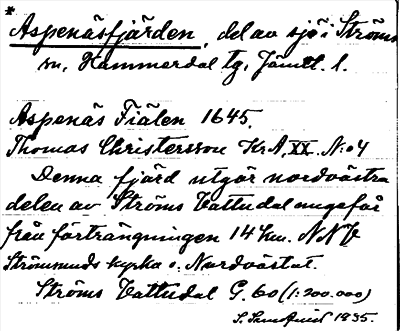 * Aspenäsfjärden, del av sjö i Ströms
sn, Hammerdal tg, Jämtl. l.
Aspenäs Fiälen 1645.
Thomas Christersson KrA, XX. No 4
Denna fjärd utgör nordvästra
delen av Ströms Vattudal ungefär
från förträngningen 14 km. NNV
Strömsunds kyrka o. Nordvästut.
Ströms Vattudal G. 60 (1:200.000)
1935.